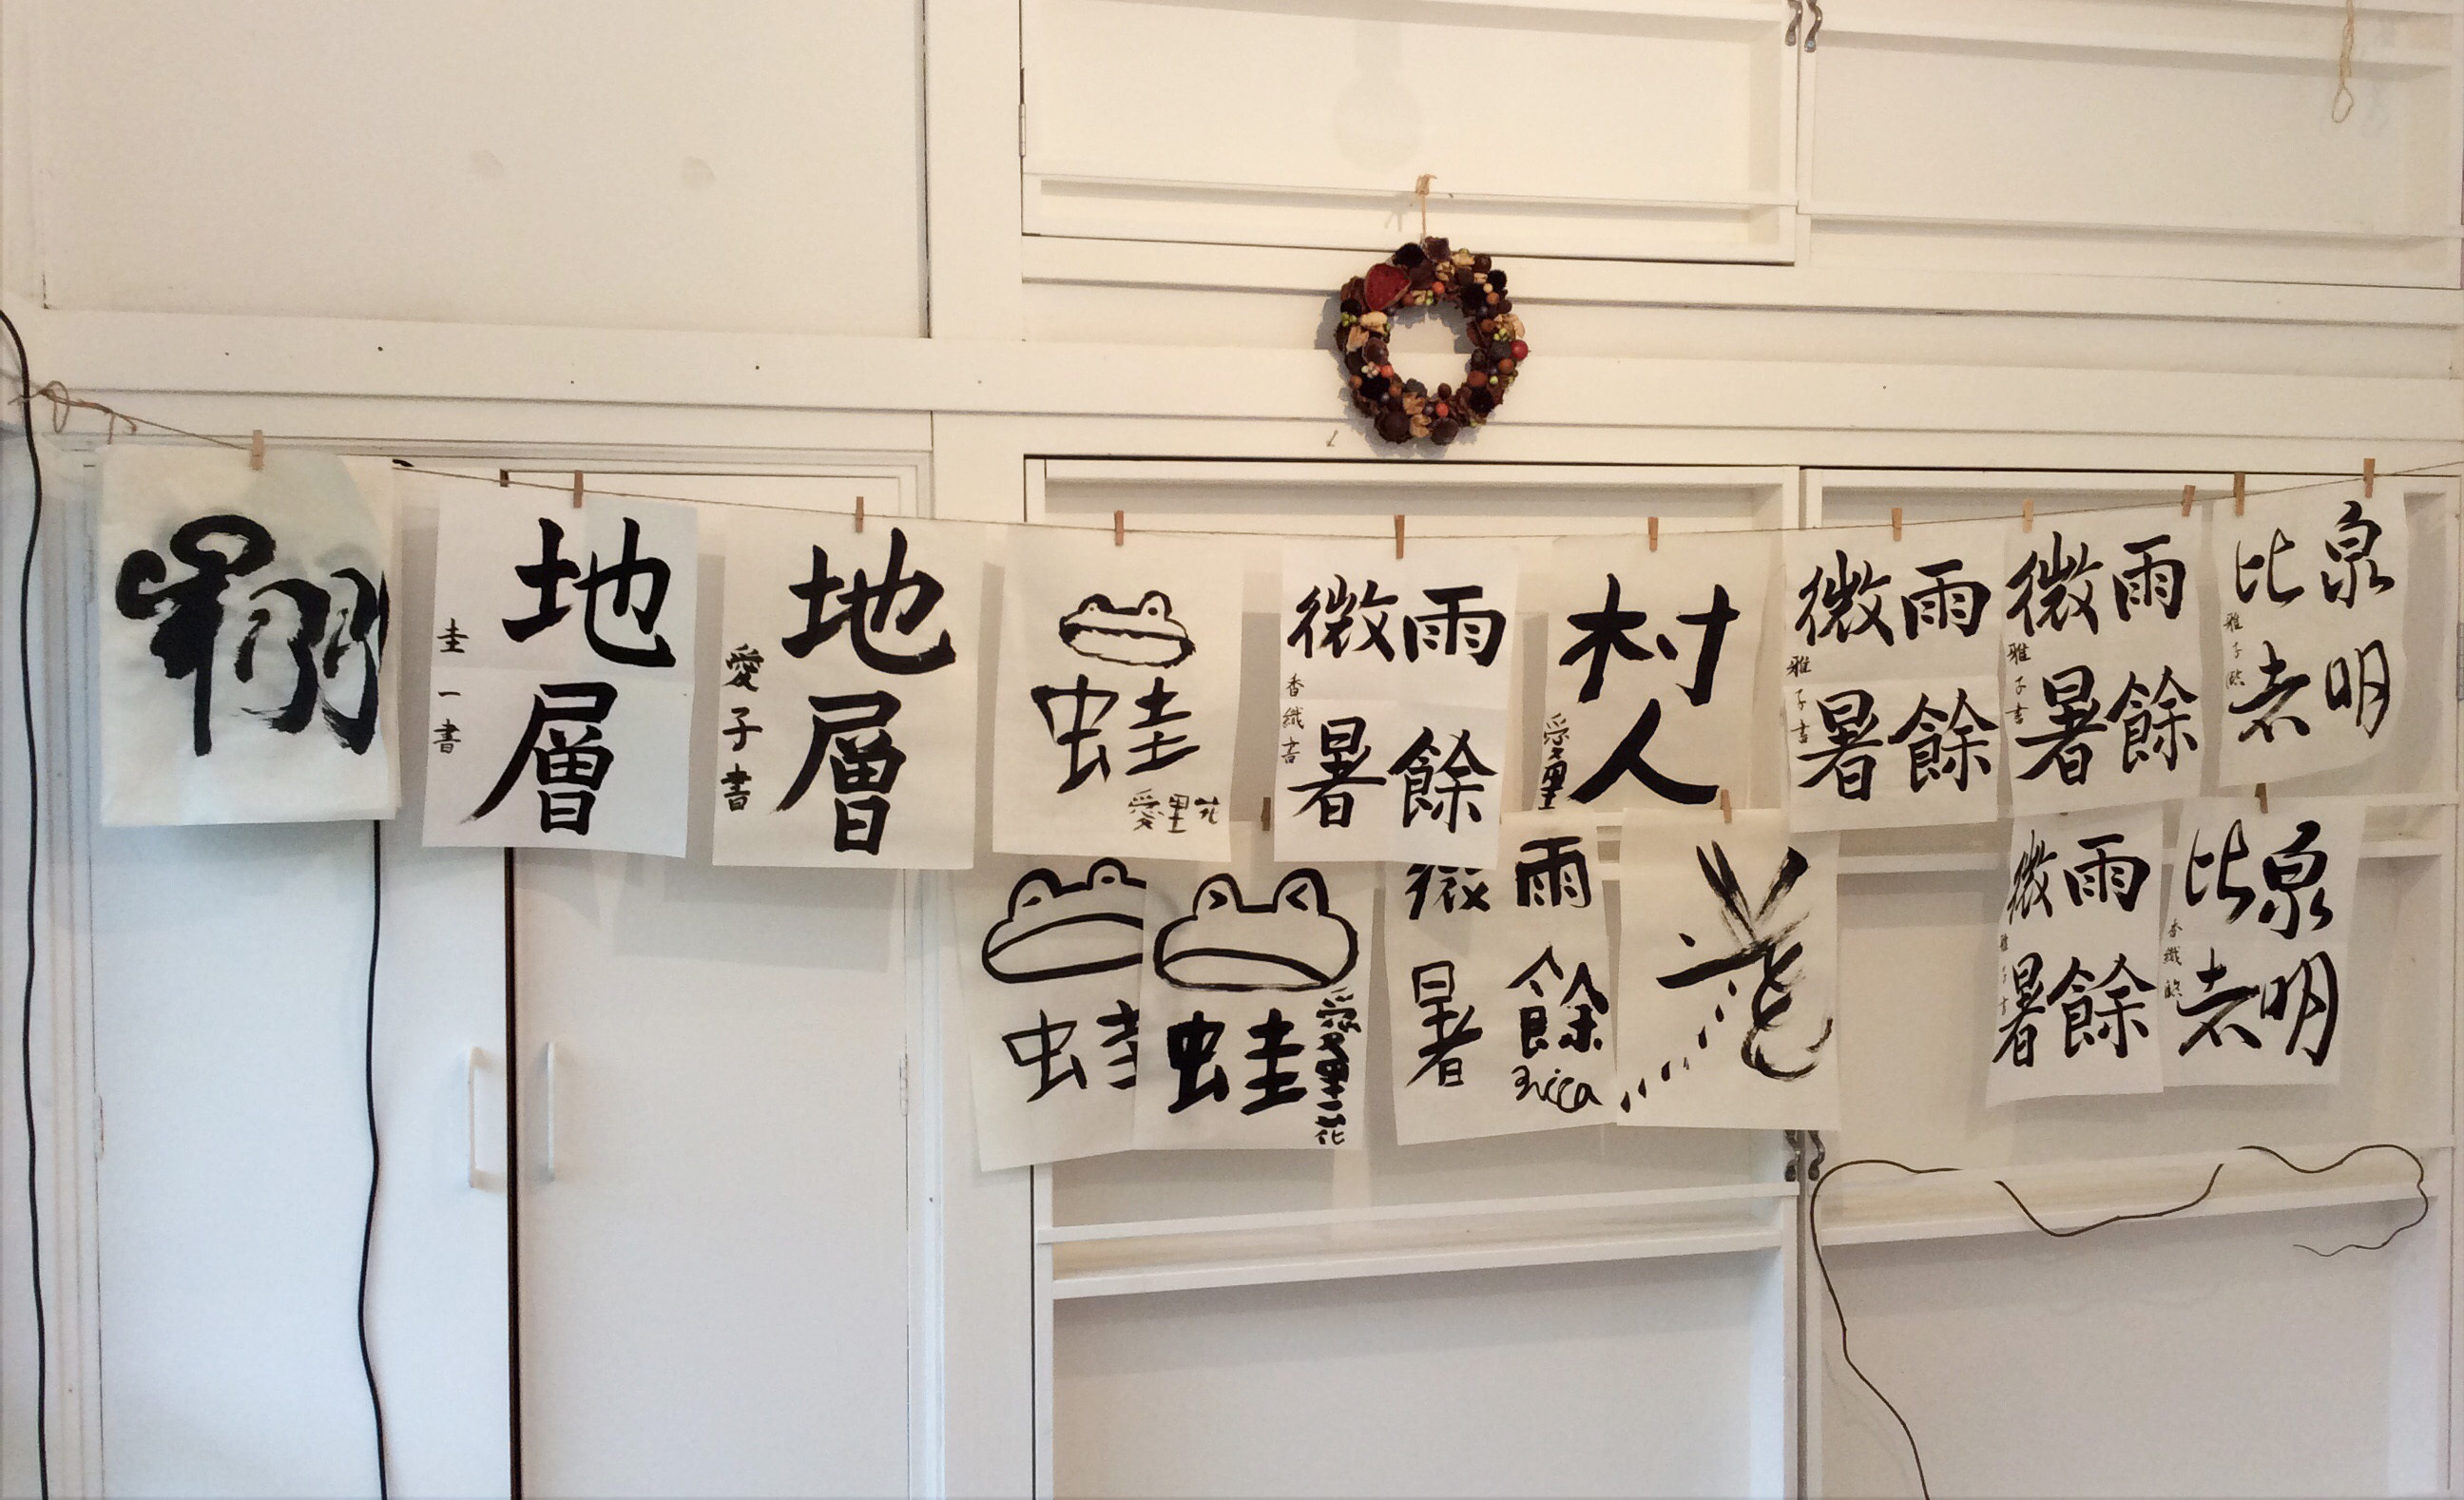 地層
圭一書
地層
愛子書
蛙
愛里花
雨餘
微暑
香織書
村人
愛里
雨餘
微暑
雅子書
雨餘
微暑
雅子書
泉明
比老
雅子臨
蛙
蛙
愛里花
雨餘
微暑
Erica
雨餘
微暑
雅子書
泉明
比老
香織臨